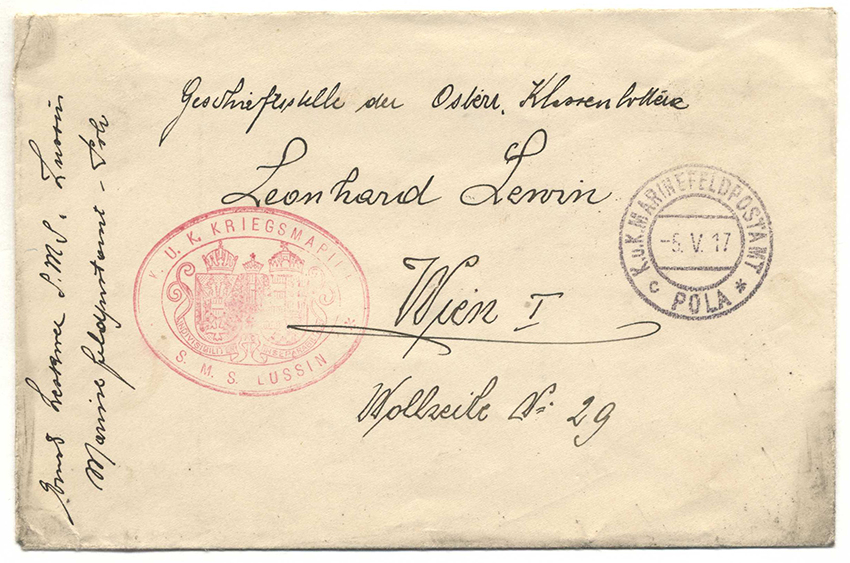 Geschäftsstelle der Österr. Klassenlotterie
Leonhard Lewin
Wien I
Wollzeile No. 29
K.u.K. MARINEFELDPOSTAMT
-5. V. 17
c POLA *
K. U. K. KRIEGSMARINE
S. M. S. LUSSIN
S.M.S. Lussin
Marinefeldpostamt - Pola